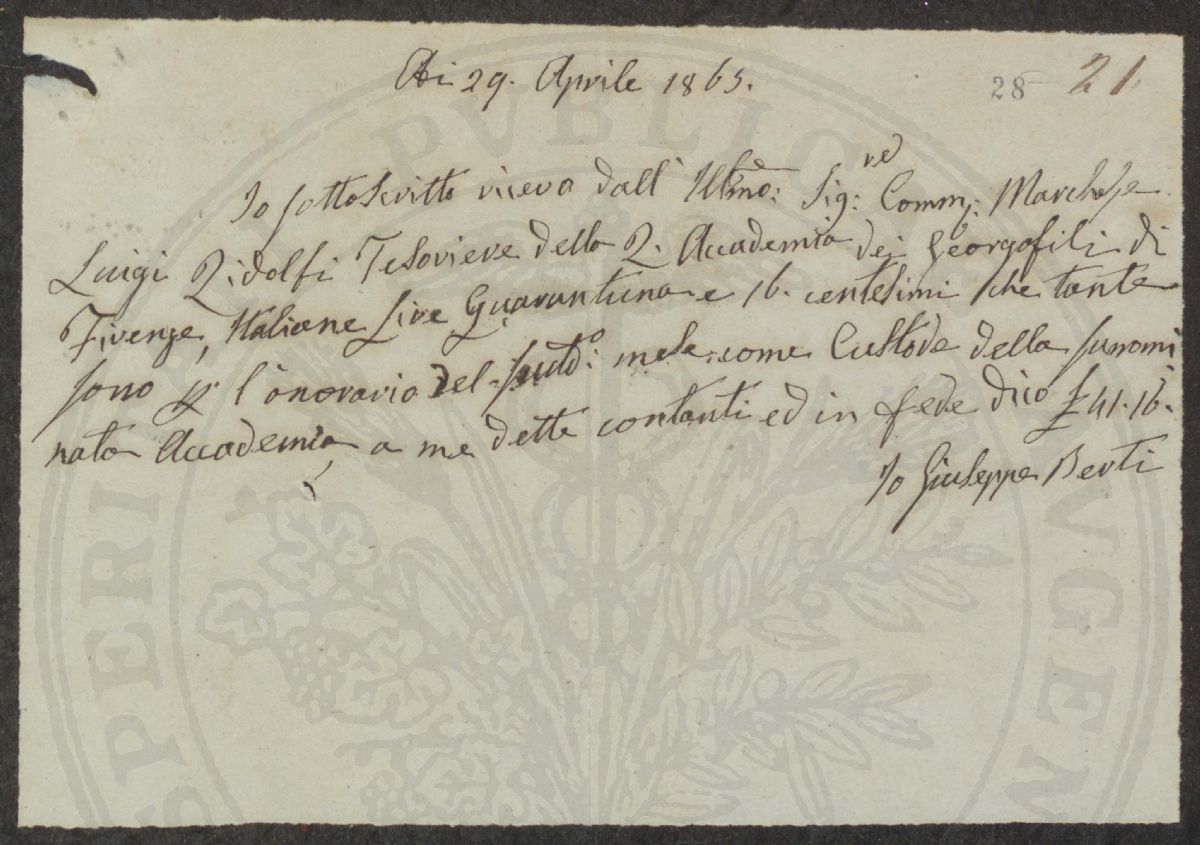 Adi 29. Aprile 1865.
28 21
Io sottoscritto ricevo dall' Illmo: Sig:re Comm: Marchese
Luigi Ridolfi Tesoriere della R. Accademia dei Georgofili di
Firenze, Italiane Lire Quarantuna e 16. centesimi che tante
sono p l'onorario del mese come Custode della sunomi
nata Accademia, a me dette contanti ed in fede dico £ 41.16.
Io Giuseppe Berti